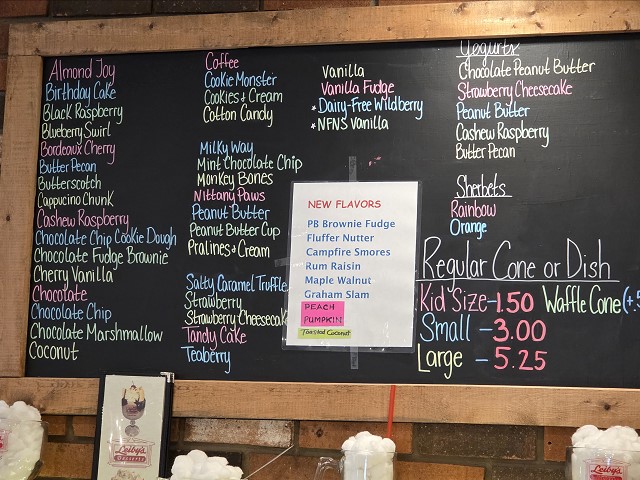 Almond Joy
Birthday Cake
Black Raspberry
Blueberry Swirl
Bordeaux Cherry
Butter Pecan
Butterscotch
Cappucino Chunk
Cashew Raspberry
Chocolate Chip Cookie Dough
Chocolate Fudge Brownie
Cherry Vanilla
Chocolate
Chocolate Chip
Chocolate Marshmallow
Coconut
Coffee
Cookie Monster
Cookies & Cream
Cotton Candy
Milky Way
Mint Chocolate Chip
Monkey Bones
Nittany Paws
Peanut Butter
Peanut Butter Cup
Pralines & Cream
Salty Caramel Truffle
Strawberry
Strawberry Cheesecake
Tandy Cake
Teaberry
Vanilla
Vanilla Fudge
*Dairy-Free Wildberry
*NFNS Vanilla
NEW FLAVORS
PB Brownie Fudge
Fluffer Nutter
Campfire Smores
Rum Raisin
Maple Walnut
Graham Slam
PEACH
PUMPKIN
Toasted Coconut
Yogurts
Chocolate Peanut Butter
Strawberry Cheesecake
Peanut Butter
Cashew Raspberry
Butter Pecan
Sherbets
Rainbow
Orange
Regular Cone or Dish
Kid Size - 1.50 Waffle Cone (+.5
Small - 3.00
Large - 5.25
Leiby's
Leiby's